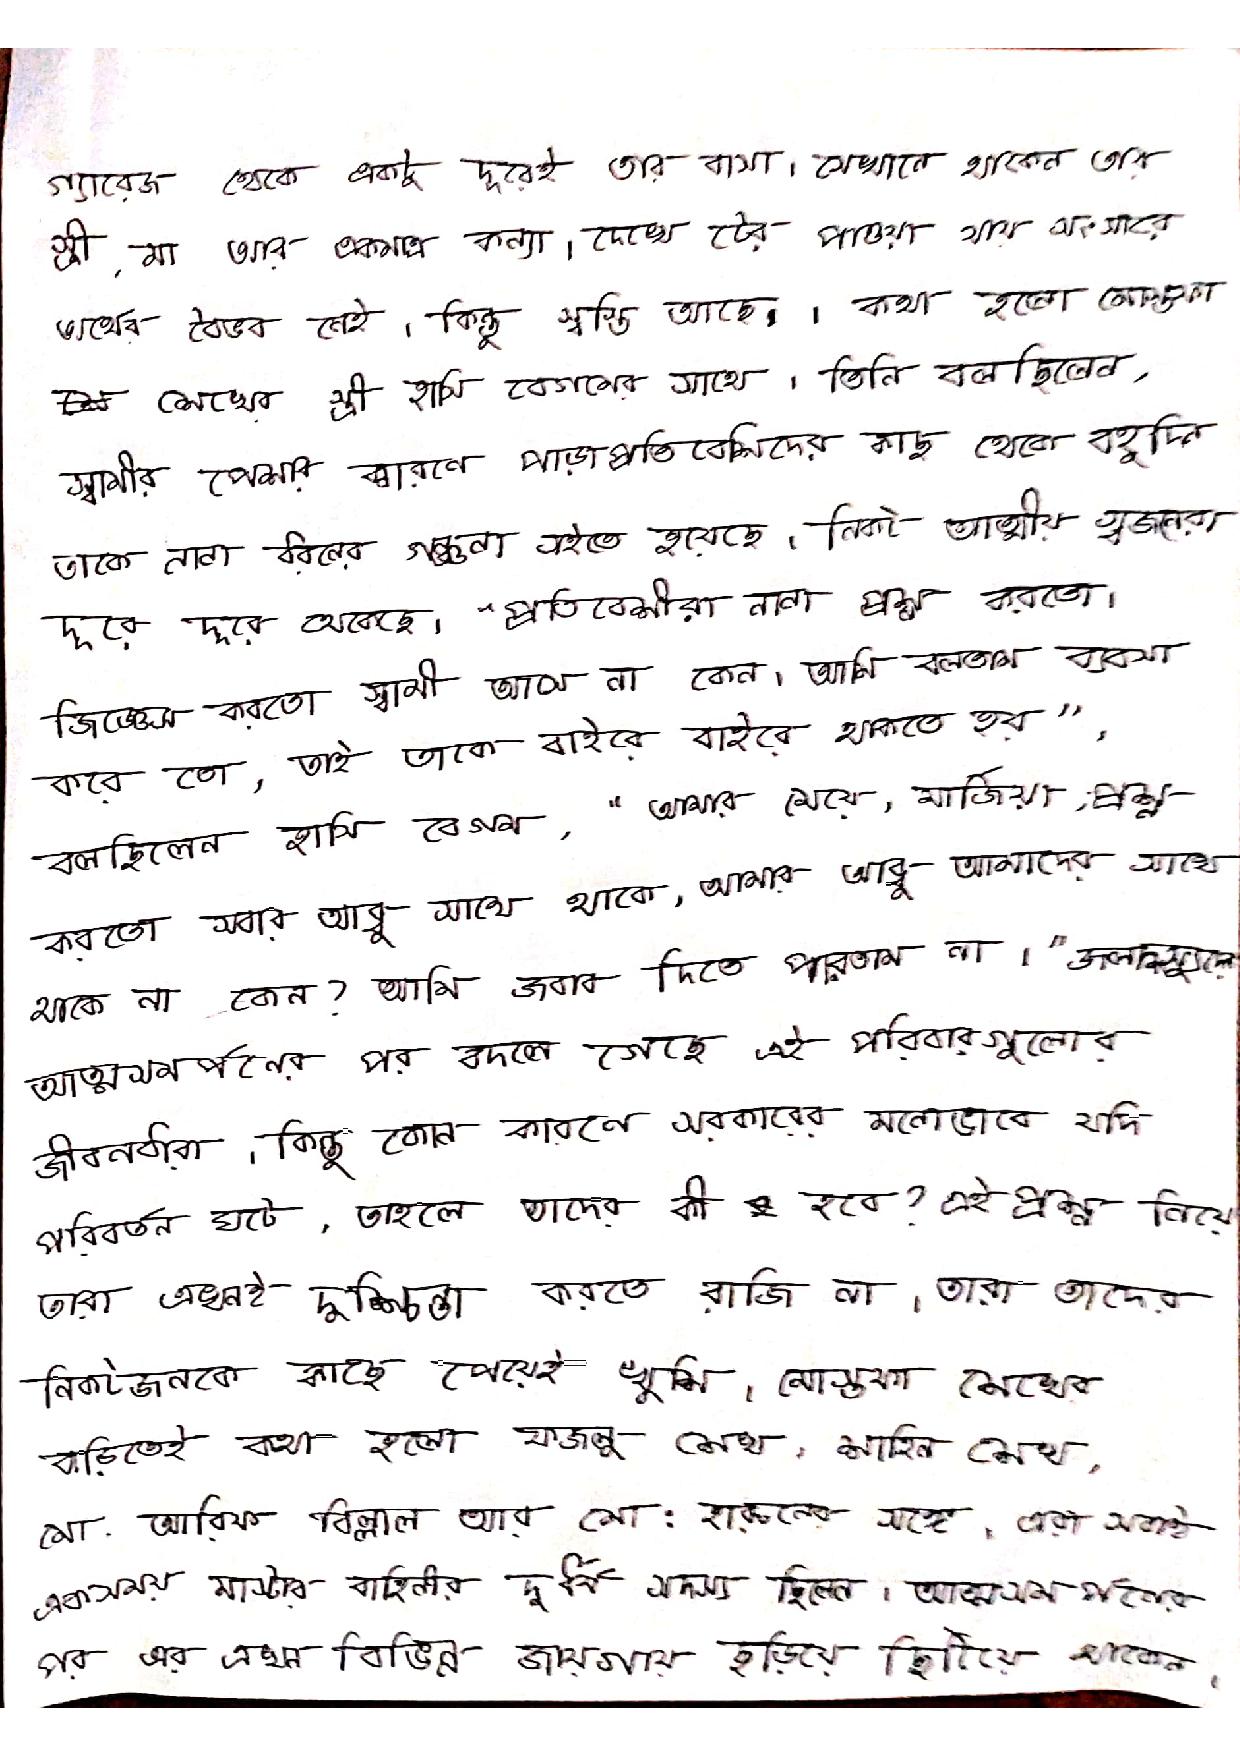 গ্যারেজ থেকে একটু দূরেই তার বাসা। সেখানে থাকেন তার
স্ত্রী, মা আর একমাত্র কন্যা। দেখে টের পাওয়া যায় সংসারে
অর্থের বৈভব নেই, কিন্তু স্বস্তি আছে। । কথা হলো মোস্তফা
শেখের স্ত্রী হাসি বেগমের সাথে। তিনি বলছিলেন,
স্বামীর পেশার কারণে পাড়াপ্রতিবেশিদের কাছ থেকে বহুদিন
তাকে নানা ধরনের গঞ্জনা সইতে হয়েছে। নিকট আত্মীয় স্বজনেরা
দূরে দূরে থেকেছে। "প্রতিবেশীরা নানা প্রশ্ন করতো।
জিজ্ঞেস করতো স্বামী আসে না কেন। আমি বলতাম ব্যবসা
করে তো, তাই তাকে বাইরে বাইরে থাকতে হয়",
বলছিলেন হাসি বেগম, "আমার মেয়ে, মার্জিয়া, প্রশ্ন
করতো সবার আব্বু সাথে থাকে, আমার আব্বু আমাদের সাথে
থাকে না কেন? আমি জবাব দিতে পারতাম না। "জলদস্যুদের
আত্মসমর্পনের পর বদলে গেছে এই পরিবারগুলোর
জীবনধারা। কিন্তু কোন কারণে সরকারের মনোভাবে যদি
পরিবর্তন ঘটে, তাহলে তাদের কী হবে? এই প্রশ্ন নিয়ে
তারা এখনই দুশ্চিন্তা করতে রাজি না। তারা তাদের
নিকটজনকে কাছে পেয়েই খুশি। মোস্তফা শেখের
বাড়িতেই কথা হলো ফজলু শেখ, শাহিন শেখ,
মো. আরিফ বিল্লাল আর মো: হারুনের সঙ্গে। এরা সবাই
একসময় মাস্টার বাহিনীর দুর্ধর্ষ সদস্য ছিলেন। আত্মসমর্পনের
পর এর এখন বিভিন্ন জায়গায় ছড়িয়ে ছিটিয়ে থাকেন।